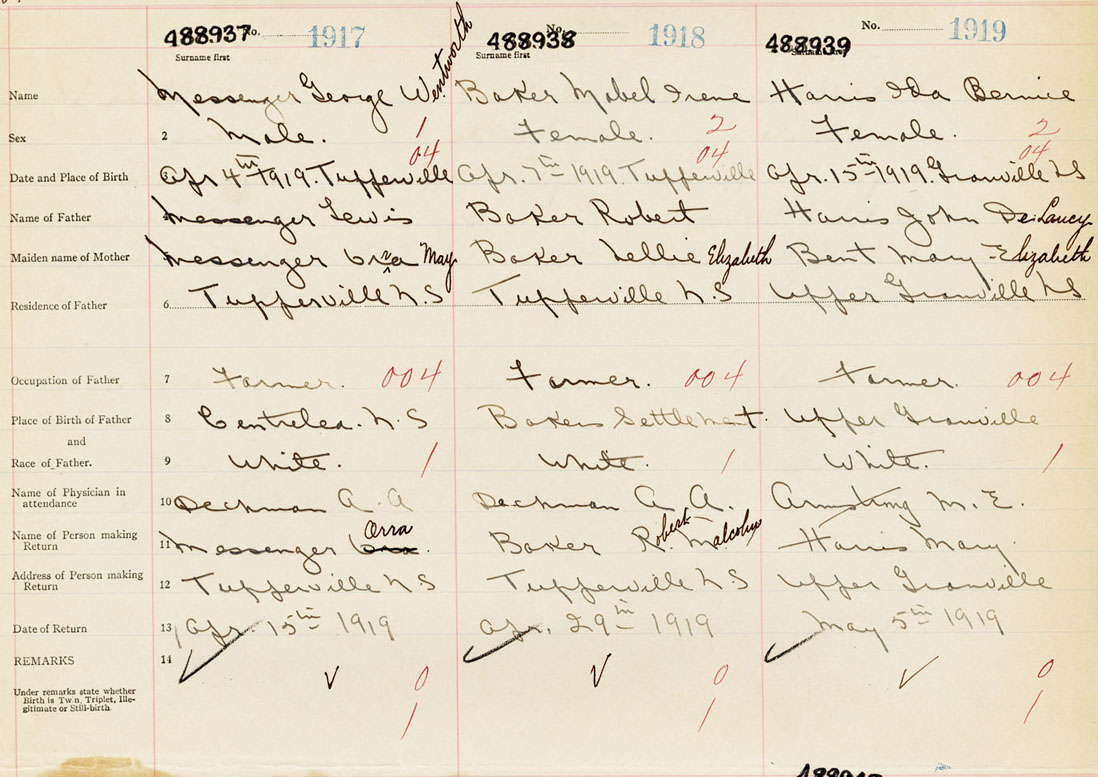 488937 No. 1917 488938 No. 1918 488939 No. 1919
Surname first Surname first Surname first
Name Messenger George Wentworth Baker Mabel Irene Harris Ida Bernice
Sex 2 Male. 1 Female. 2 Female. 2
04 04 04
Date and Place of Birth Apr 4th 1919. Tupperville Apr. 7th 1919. Tupperville Apr. 15th 1919. Granville NS
Name of Father Messenger Lewis Baker Robert Harris John DeLancy
Maiden name of Mother Messenger May Baker Lellie Elizabeth Bent Mary Elizabeth
Residence of Father 6 Tupperville N.S Tupperville N.S Upper Granville NS
Occupation of Father 7 Farmer. 004 Farmer. 004 Farmer. 004
Place of Birth of Father 8 Centrelea. N.S Bakers Settlement. Upper Granville
and
Race of Father. 9 White. 1 White. 1 White. 1
Name of Physician in
attendance 10 Deckman A. A Deckman A. A. Armstrong M. E.
Name of Person making
Return 11 Messenger Orra. Baker Robert Malcolm Harris Mary.
Address of Person making
Return 12 Tupperville N.S Tupperville N S Upper Granville
Date of Return 13 Apr. 15th 1919 Apr. 29th 1919 May 5th 1919
REMARKS 14
0 0 0
Under remarks state whether
Birth is Twin, Triplet, Ille-
gitimate or Still-birth. 1 1 1